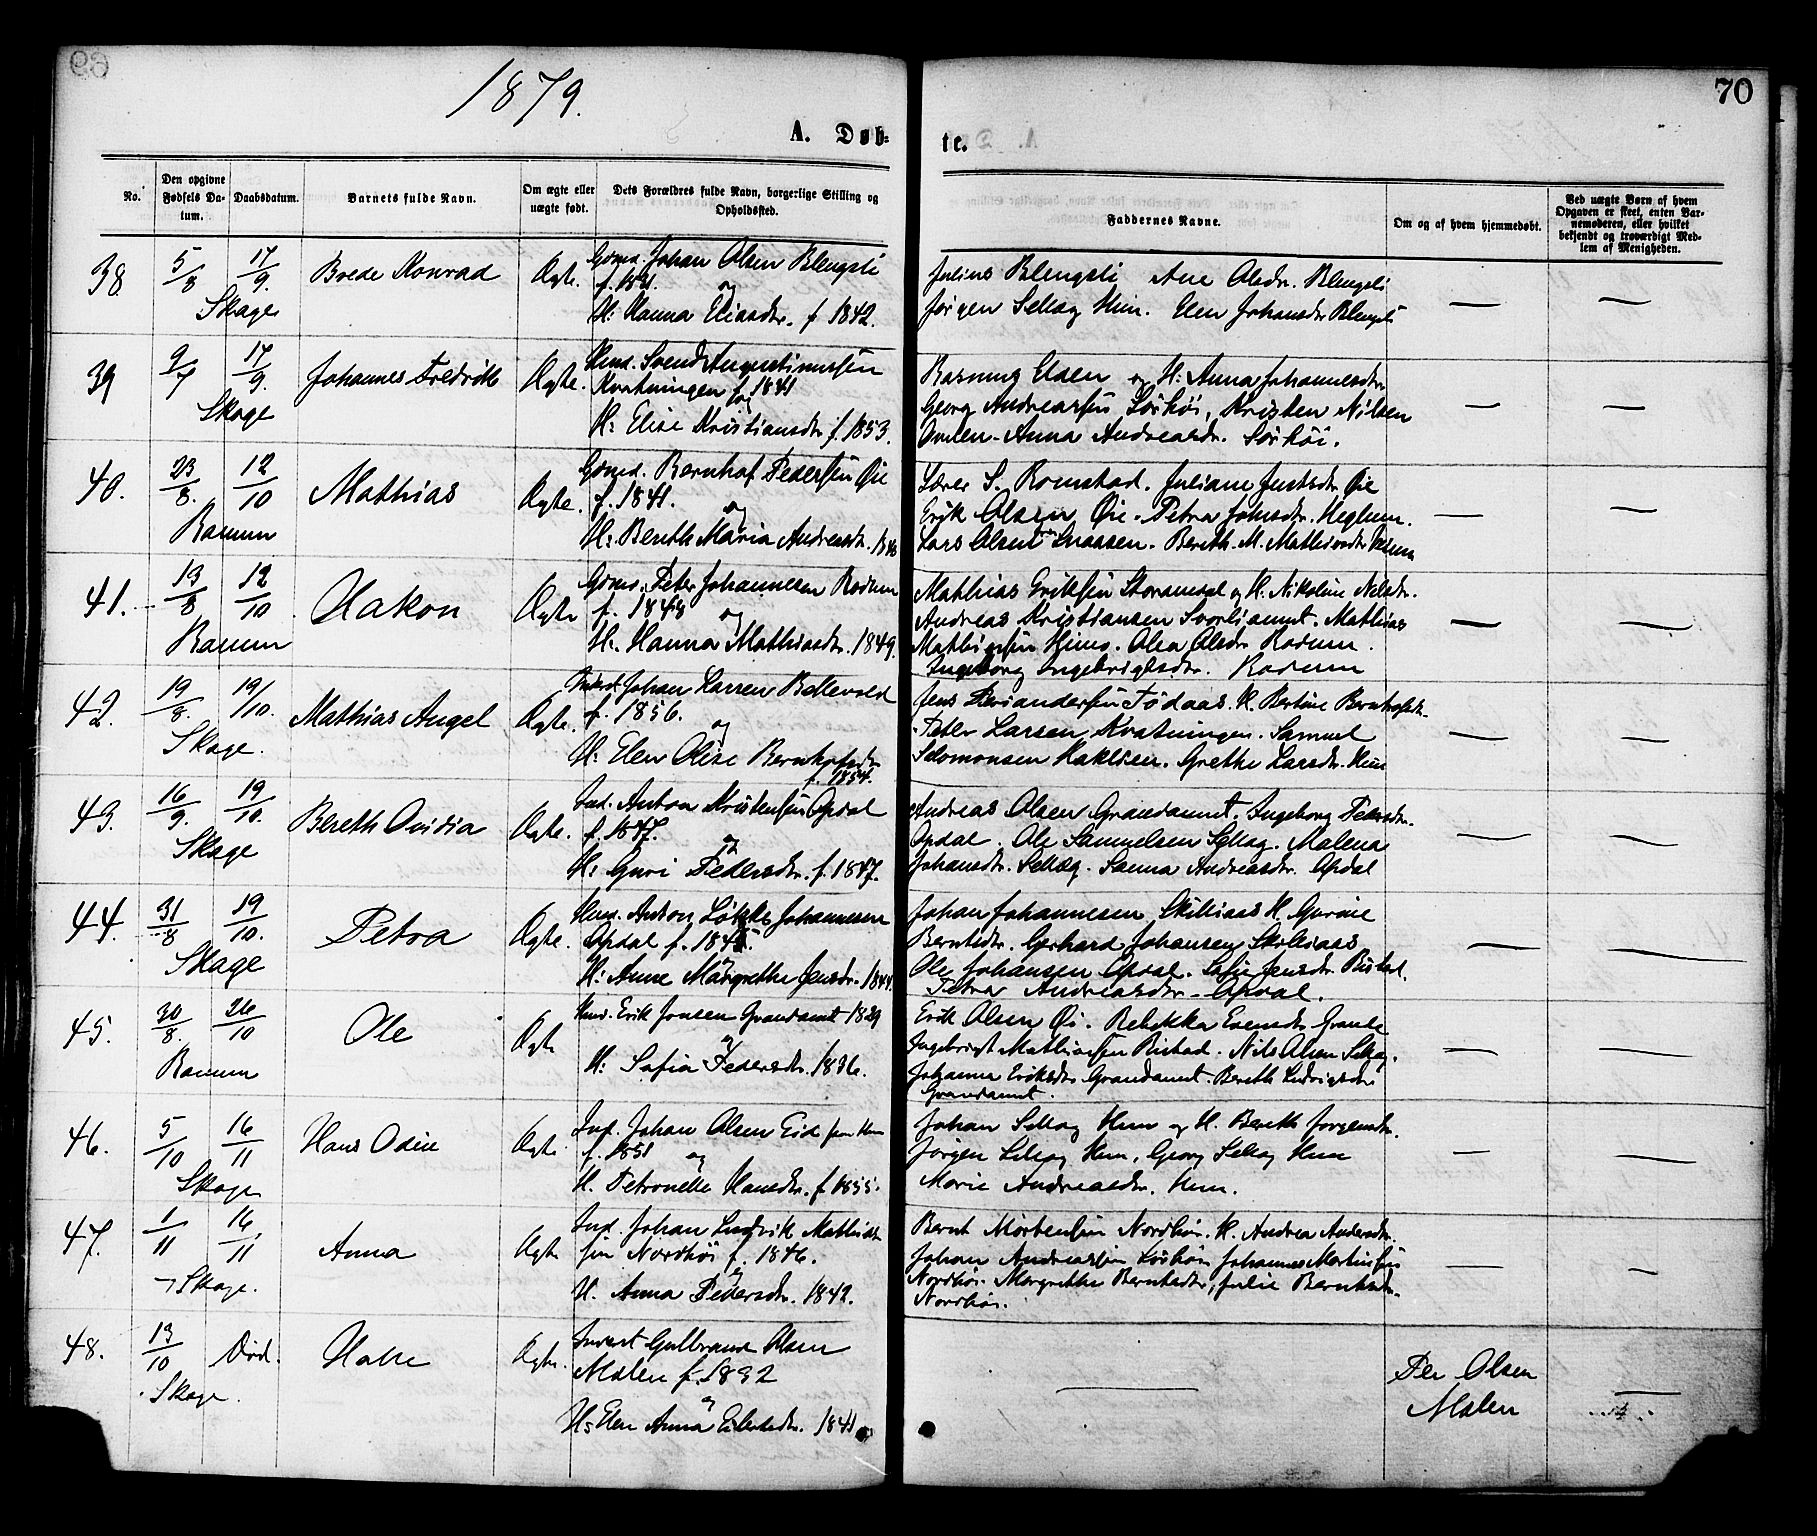 1879.
70
A. Døb-
te.
No.
Den opgivne Fødsels Da-tum.
Daabsdatum.
Barnets fulde Navn.
Om ægte eller uægte født.
Dets Forældres fulde Navn, borgerlige Stilling og Opholdssted.
Faddernes Navne.
Om og af hvem hjemmedøbt.
Ved uægte Børn af hvem Opgaven er skeet, enten Bar-nemoderen, eller hvilket bekjendt og troværdigt Med-lem af Menigheden.
38. 5/8 17/9. Skage
Boede Konrad
Ægte.
Gmd. Johan Olsen Blengsli
og
H: Hanna Eliasdtr. f 1842.
Julius Blengsli Ane Olsdr. Blengsli
Jørgen Selløg Hun. Elen Johansdtr Blengsli
39 9/7 17/9. Skage
Johannes Fredrik
Ægte.
Hmd. Svend Augustinussen
Kvatningen f. 1841
og
H: Elise Kristiansdtr f. 1853.
Elsen og H: Anna Johannesdtr
Georg Andreassen Sørhøi, Kristen Nilsen
Anna Andreasdr. Sørhøi.
40. 23/8. 12/10 Ranum
Mathias
Ægte.
Gmd. Bernhof Pedersen Øie
f. 1841.
og
H: Bereth Maria Andreasdtr.
Lærer S. Romstad. Juliane Justsdtr Øie
Erik Olsen Øie. Petra Johnsdtr. Heglum.
Lars Olsen Snaasen. Bereth. M. Mathiasdtr
41. 13/8 12/10 Ranum
Hakon
Ægte
Gmd. Peter Johannesen Rodum
f. 1848
og
H. Hanna Mathiasdtr. 1849.
Mathias Eriksen og H. Nikoline Nilsdr.
Andreas Kristiansen Mathias
Mathiassen Himo. Olea Olsdr Rodum.
Ingeborg Ingebrigtsdtr. Rodum
42. 19/8. 19/10. Skage.
Mathias Angel
Ægte.
Johan Larsen Bellevold
f. 1856.
og
H: Elen Olise Bernhofsdtr
f. 1854.
Jens H. Bertine Berntsdtr.
Peter Larsen Kvatningen. Samuel
Salomonsen Grethe Larsdtr. Hun
43. 16/9. 19/10. Skage
Bereth Ovidia
Ægte.
Ind. Anton Kristensen Opdal
f. 1847.
og
H: Guri Pedersdtr. f. 1847.
Andreas Olsen Grandamt. Ingeborg Pedersdtr.
Opdal. Ole Samuelsen Selløg. Malena
Johansdtr. Selløg. Sanna Andreasdtr. Opdal
44. 31/8 19/10. Skage
Petra
Ægte.
Hmd. Anton Løkke Johannesen
Opdal f.
H: Anne Margrethe Jensdtr. 1844.
Johan Johannesen Skilliaas H. Gurine
Berntsdtr. Gerhard Johansen Skilliaas
Ole Johansen Opdal. Sofie Jensdtr. Ristad.
Petra Andreasdtr. Opdal.
45. 30/8. 26/10 Ranum
Ole
Ægte
Hmd. Erik Jonsen Grandamt 1829
og
H: Sofia Pedersdtr. 1836.
Erik Olsen Øi. Rebekka Evensdtr Grande
Ingebrigt Mathiassen Ristad. Nils Olsen Selløg.
Johanna Eriksdtr Grandamt. Bereth Ludvigsdtr
Grandamt.
46. 5/10 16/11 Skage
Hans Odin
Ægte
Ind. Johan Olsen Eid fra Hun
f. 1851 og
H. Petronelle Hansdtr. f. 1855.
Johan Selløg Hun og H. Bereth Jørgensdtr.
Jørgen Selløg Hun, Georg Selløg Hun
Marie Andreasdtr. Hun.
47. 1/11 16/11 Skage.
Anna
Ægte
Ind. Johan Ludvik Mathias-
sen Nordhøi f. 1846.
og
H. Anna Pedersdtr. 1842.
Bernt Mortensen Nordhøi. H. Andrea Andersdtr.
Johan Andreassen Sørhøi Johannes Martinsen
Nordhøi. Margrethe Berntsdtr, Julie Berntsdtr.
Nordhøi.
48. 13/10 Død. Skage.
Ægte.
Inderst Gulbrand Olsen
Molen f. 1832
og
H: Elen Anna Eilertsdtr. 1841
Per Olsen
Molen